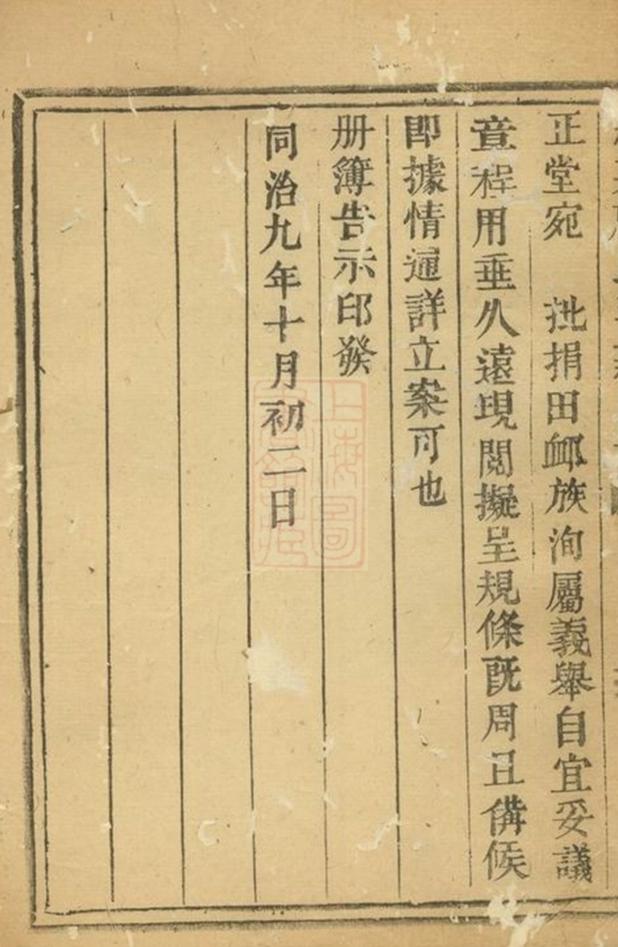 正堂宛 批捐田䘏族洵屬義舉自宜妥議
章程用垂久遠現閲擬呈規條旣周且備候
即據情通詳立案可也
册簿告示印發
同治九年十月初二日